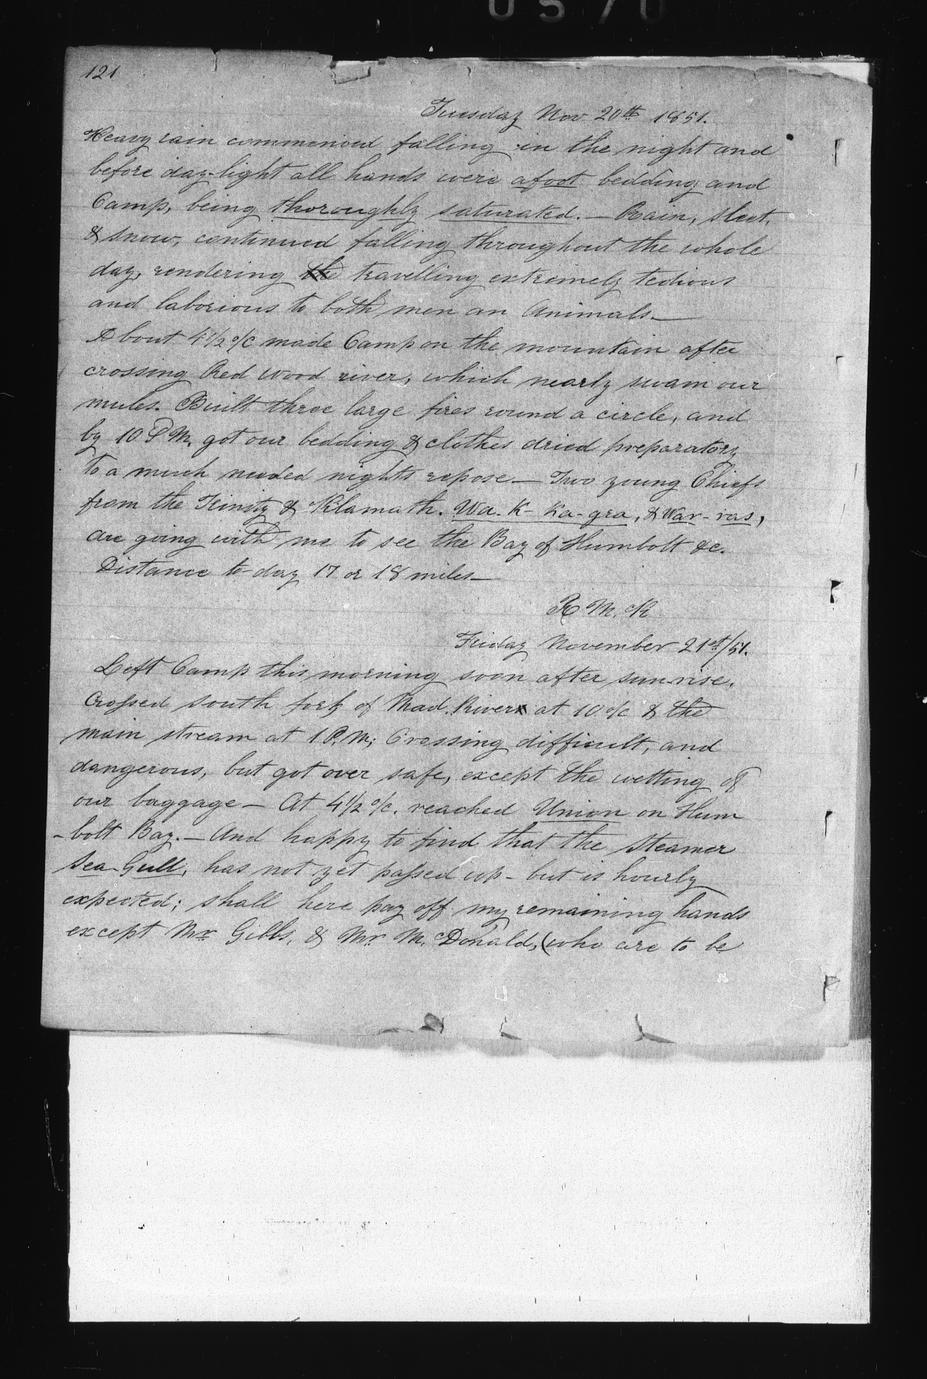 0570
121
Tuesday Nov 20th 1851.
Heavy rain commenced falling in the night and
before day-light all hands were afoot bedding and
Camp, being thoroughly saturated. — Rain, sleet,
& snow, continued falling throughout the whole
day, rendering the travelling extremely tedious
and laborious to both men an Animals. —
About 4 1/2 o/c made Camp on the mountain after
crossing Red wood river, which nearly swam our
mules. Built three large fires round a circle, and
by 10 P.M. got our bedding & clothes dried preparatory
to a much needed nights repose. — Two young Chiefs
from the Trinity & Klamath. Wa-K-Ka-gra, & War-ras,
are going with me to see the Bay of Humbolt &c.
Distance to-day 17 or 18 miles —
R. M. K
Friday November 21st/51.
Left Camp this morning soon after sun-rise.
Crossed south fork of Mad River at 10 o/c & the
main stream at 1 P.M; Crossing difficult, and
dangerous, but got over safe, except the wetting of
our baggage — At 4 1/2 o/c. reached Union on Hum
-bolt Bay. — And happy to find that the steamer
Sea-Gull, has not yet passed up - but is hourly
expected; shall here pay off my remaining hands
except Mr Gibbs, & Mr. McDonald, (who are to be